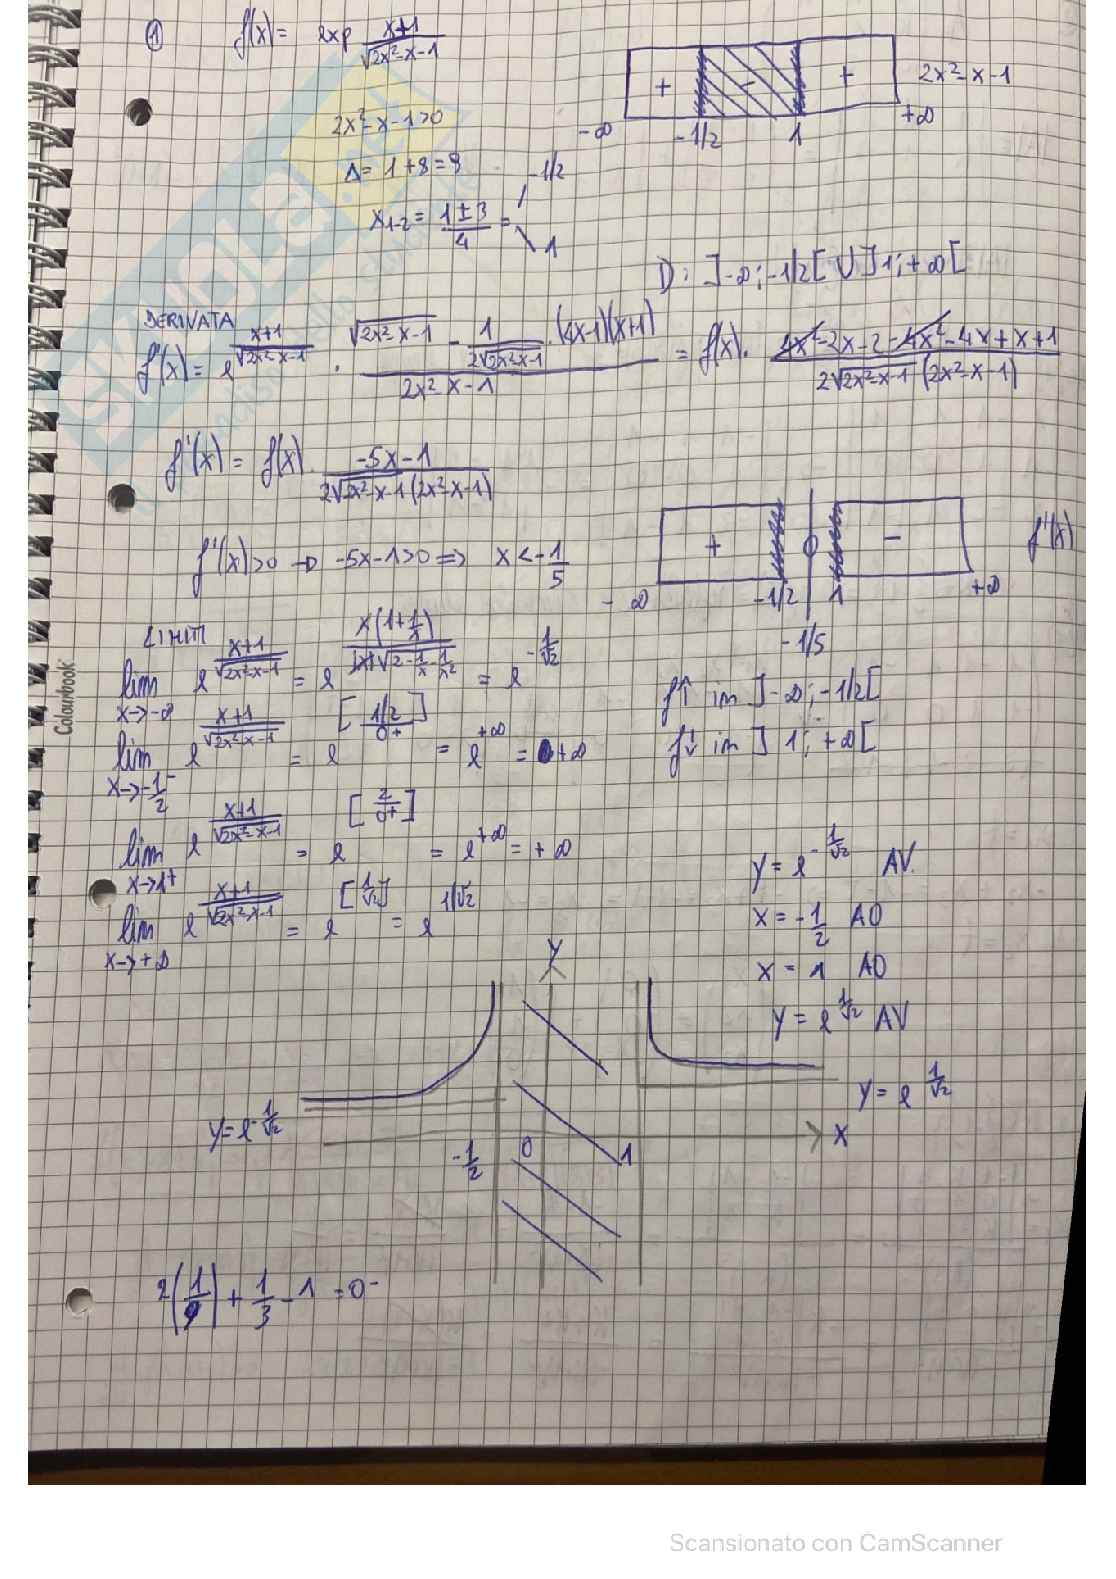 ① f(x) = exp (x+1)/√(2x²-x-1)
+ - + 2x²-x-1
-∞ -1/2 1 +∞
2x²-x-1>0
Δ = 1+8=9
x₁₋₂ = (1±3)/4 = -1/2
1
D: ]-∞;-1/2[ ∪ ]1;+∞[
DERIVATA
f'(x) = e^((x+1)/√(2x²-x-1)) · (√(2x²-x-1) - 1/(2√(2x²-x-1)) · (4x-1)(x+1))/(2x²-x-1) = f(x) · (4x²-2x-2-4x²-4x+x+1)/(2√(2x²-x-1) (2x²-x-1))
f'(x) = f(x) · (-5x-1)/(2√(2x²-x-1) (2x²-x-1))
f'(x)>0 → -5x-1>0 => x<-1/5
+ - f'(x)
-∞ -1/2 1 +∞
-1/5
LIMITI
lim x→-∞ e^((x+1)/√(2x²-x-1)) = e^(x(1+1/x)/(|x|√(2-1/x-1/x²))) = e^(-1/√2)
f↑ in ]-∞;-1/2[
lim x→-1/2⁻ e^((x+1)/√(2x²-x-1)) = e^[(1/2)/0+] = e^(+∞) = +∞
f↓ in ]1;+∞[
lim x→1+ e^((x+1)/√(2x²-x-1)) = e^[2/0+] = e^(+∞) = +∞
lim x→+∞ e^((x+1)/√(2x²-x-1)) = e^[1/√2] = e^(1/√2)
y = e^(-1/√2) AV.
x = -1/2 AO
x = 1 AO
y = e^(1/√2) AV
Y
y = e^(1/√2)
y = e^(-1/√2)
X
-1/2 0 1
2(1/9) + 1/3 - 1 = 0-
Colourbook
Scansionato con CamScanner